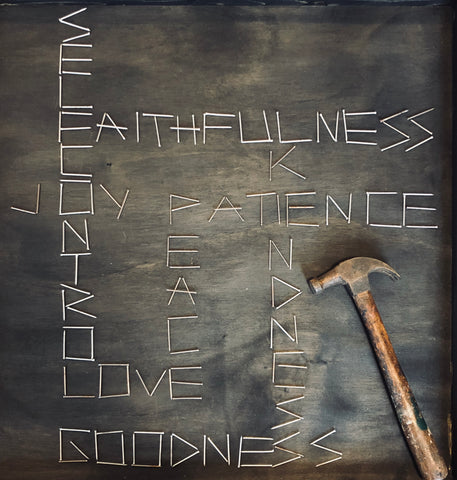 SELFCONTROL
FAITHFULNESS
KINDNESS
JOY
PATIENCE
PEACE
LOVE
GOODNESS